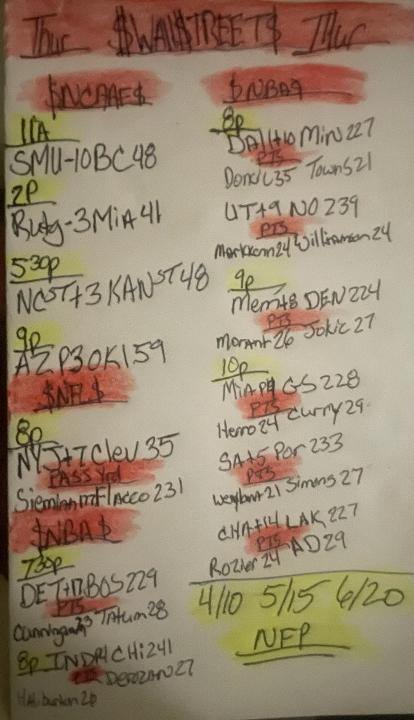 Thur $WALL$TREET$ Thur
$NCAAF$
11A
SMU-10BC48
2P
Rutg-3MiA41
530p
NCST+3KANST48
9p
AZP3OK159
$NFL$
8p
NYJ+7Clev35
PASS Yrd
Siemian Flacco231
$NBA$
730p
DET+17BOS229
PTS
Cunningham23 Tatum28
8p INDP1CHi241
PTS DEROZAN27
Haliburton20
$NBA$
8p
DAll+10Min227
PTS
Doncic35 Towns21
UT+9NO239
PTS
Markkanen24Williamson24
9p
Mem+8DEN224
PTS
morant26 Jokic27
10p
MiAP4GS228
PTS
Herro24 Curry29
SA+5Por233
PTS
Wemban21Simons27
CHA+14LAK227
PTS
Rozier24 AD29
4/10 5/15 6/20
NFP